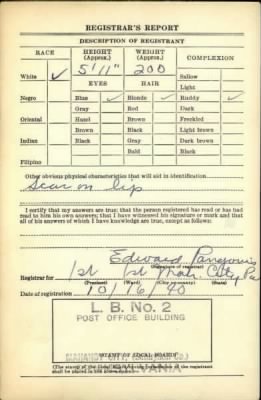 REGISTRAR'S REPORT
DESCRIPTION OF REGISTRANT
RACE HEIGHT (Approx.) WEIGHT (Approx.) COMPLEXION
White ✓ 5'11" 200 Sallow
EYES HAIR Light
Negro Blue ✓ Blonde ✓ Ruddy ✓
Gray Red Dark
Oriental Hazel Brown Freckled
Brown Black Light brown
Indian Black Gray Dark brown
Bald Black
Filipino
Other obvious physical characteristics that will aid in identification
Scar on lip
I certify that my answers are true; that the person registered has read or has had
read to him his own answers; that I have witnessed his signature or mark and that
all of his answers of which I have knowledge are true, except as follows:
Edward
(Signature of registrar)
Registrar for 1st 1st Mah. City Pa
(Precinct) (Ward) (City or county) (State)
Date of registration 10/16/40
L. B. No. 2
POST OFFICE BUILDING
MAHANOY CITY,
(STAMP OF LOCAL BOARD)
(The stamp of the Local Board having jurisdiction of the registrant
shall be placed in the above space.)